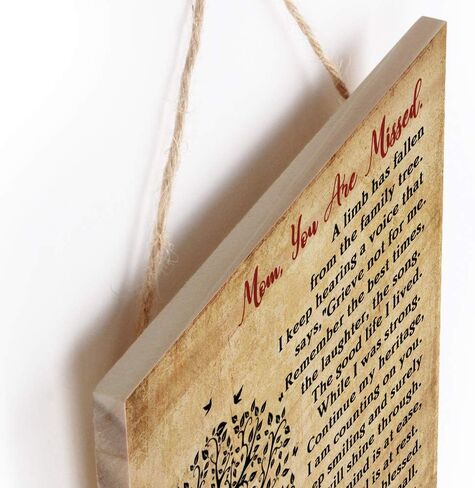 Mom, You Are Missed.
A limb has fallen
from the family tree.
I keep hearing a voice that
says, "Grieve not for me.
Remember the best times,
the laughter, the song.
The good life I lived.
While I was strong.
Continue my heritage,
I am counting on you.
smiling and surely
will shine through.
mind is at ease,
is at rest.
blessed.
all